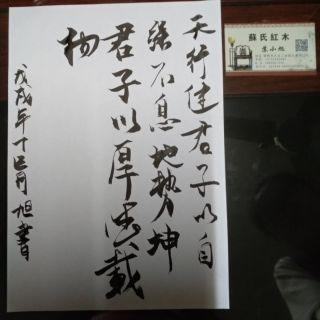 天行健君子以自
强不息地势坤
君子以厚德載
物
戊戌年十月旭書
蘇氏紅木